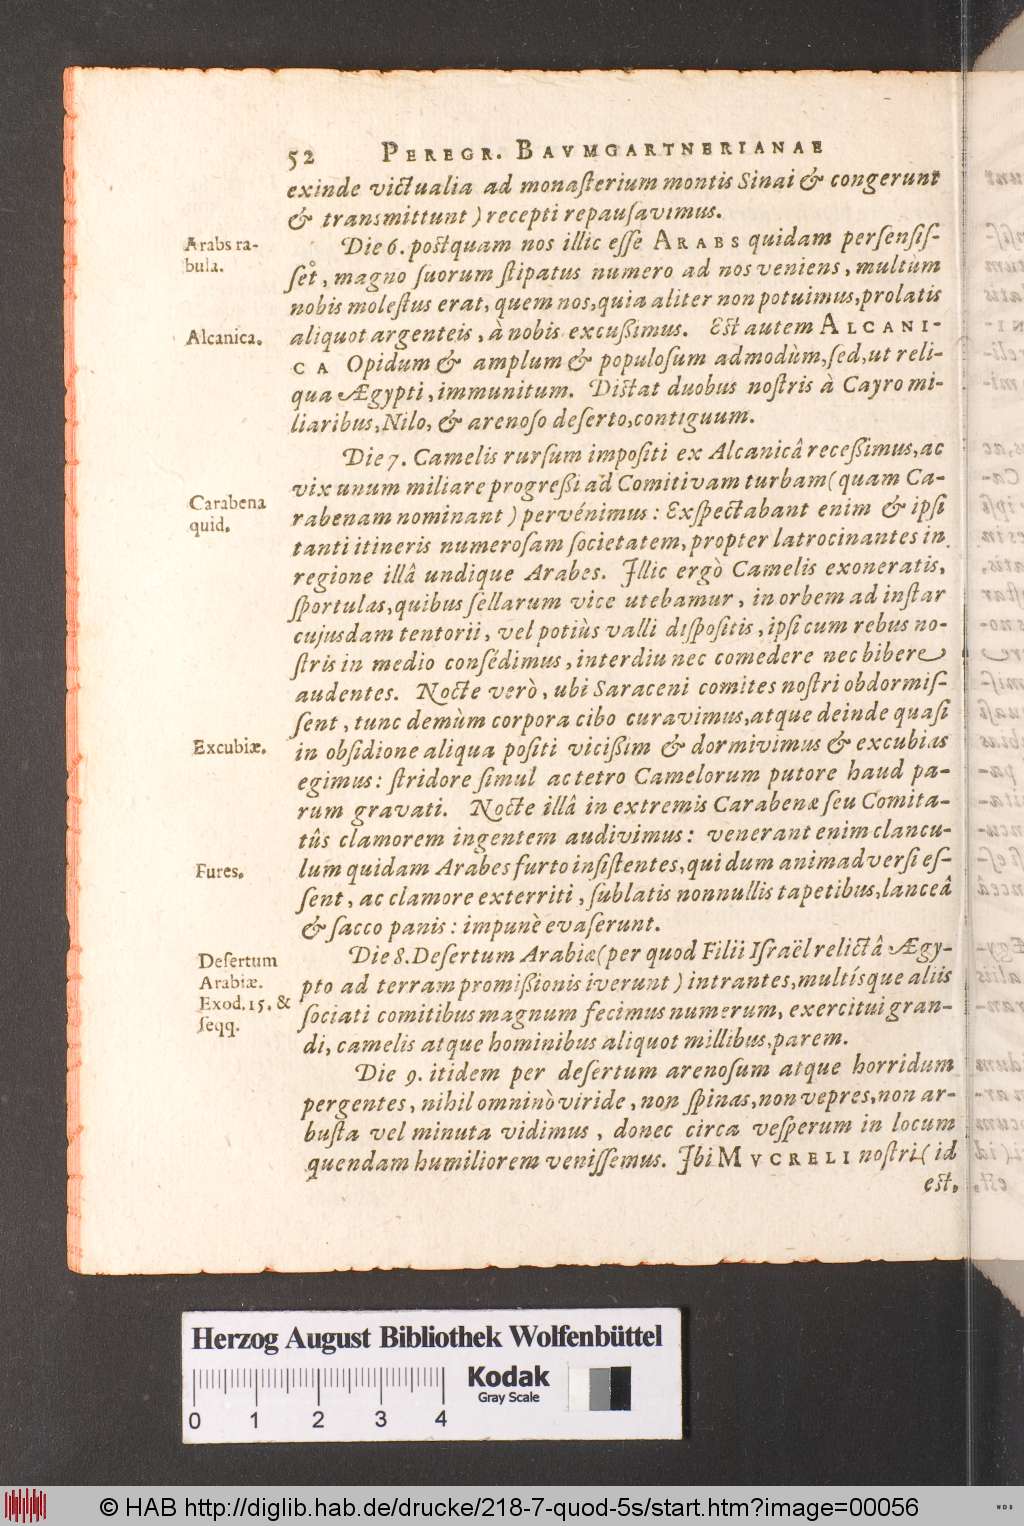 52 PEREGR. BAVMGARTNERIANAE
exinde victualia ad monaſterium montis Sinai & congerunt
& transmittunt) recepti repauſavimus.
Arabs ra-
bula.
Die 6. poſtquam nos illic eſſe ARABS quidam perſensiſ-
ſet, magno ſuorum ſtipatus numero ad nos veniens, multum
nobis moleſtus erat, quem nos, quia aliter non potuimus, prolatis
Alcanica.
aliquot argenteis, à nobis excußimus. Eſt autem ALCANI-
CA Opidum & amplum & populoſum admodùm, ſed, ut reli-
qua Ægypti, immunitum. Diſtat duobus noſtris à Cayro mi-
liaribus, Nilo, & arenoſo deſerto, contiguum.
Die 7. Camelis rurſum impoſiti ex Alcanicâ receßimus, ac
vix unum miliare progreßi ad Comitivam turbam (quam Ca-
Carabena
quid.
rabenam nominant) pervénimus: Exſpectabant enim & ipſi
tanti itineris numeroſam ſocietatem, propter latrocinantes in
regione illâ undique Arabes. Illic ergò Camelis exoneratis,
ſportulas, quibus ſellarum vice utebamur, in orbem ad inſtar
cujusdam tentorii, vel potiùs valli diſpoſitis, ipſi cum rebus no-
ſtris in medio conſédimus, interdiu nec comedere nec bibere
audentes. Nocte verò, ubi Saraceni comites noſtri obdormiſ-
ſent, tunc demùm corpora cibo curavimus, atque deinde quaſi
Excubiæ.
in obſidione aliqua poſiti vicißim & dormivimus & excubias
egimus: ſtridore ſimul ac tetro Camelorum putore haud pa-
rum gravati. Nocte illâ in extremis Carabenæ ſeu Comita-
tûs clamorem ingentem audivimus: venerant enim clancu-
Fures.
lum quidam Arabes furto inſiſtentes, qui dum animadverſi eſ-
ſent, ac clamore exterriti, ſublatis nonnullis tapetibus, lanceâ
& ſacco panis: impunè evaſerunt.
Deſertum
Arabiæ.
Exod. 15. &
ſeqq.
Die 8. Deſertum Arabiæ (per quod Filii Iſraël relictâ Ægy-
pto ad terram promißionis iverunt) intrantes, multísque aliis
ſociati comitibus magnum fecimus numerum, exercitui gran-
di, camelis atque hominibus aliquot millibus, parem.
Die 9. itidem per deſertum arenoſum atque horridum
pergentes, nihil omninò viride, non ſpinas, non vepres, non ar-
buſta vel minuta vidimus, donec circa veſperum in locum
quendam humiliorem veniſſemus. Ibi MVCRELI noſtri (id
eſt,
Herzog August Bibliothek Wolfenbüttel
0 1 2 3 4
Kodak
Gray Scale
© HAB http://diglib.hab.de/drucke/218-7-quod-5s/start.htm?image=00056